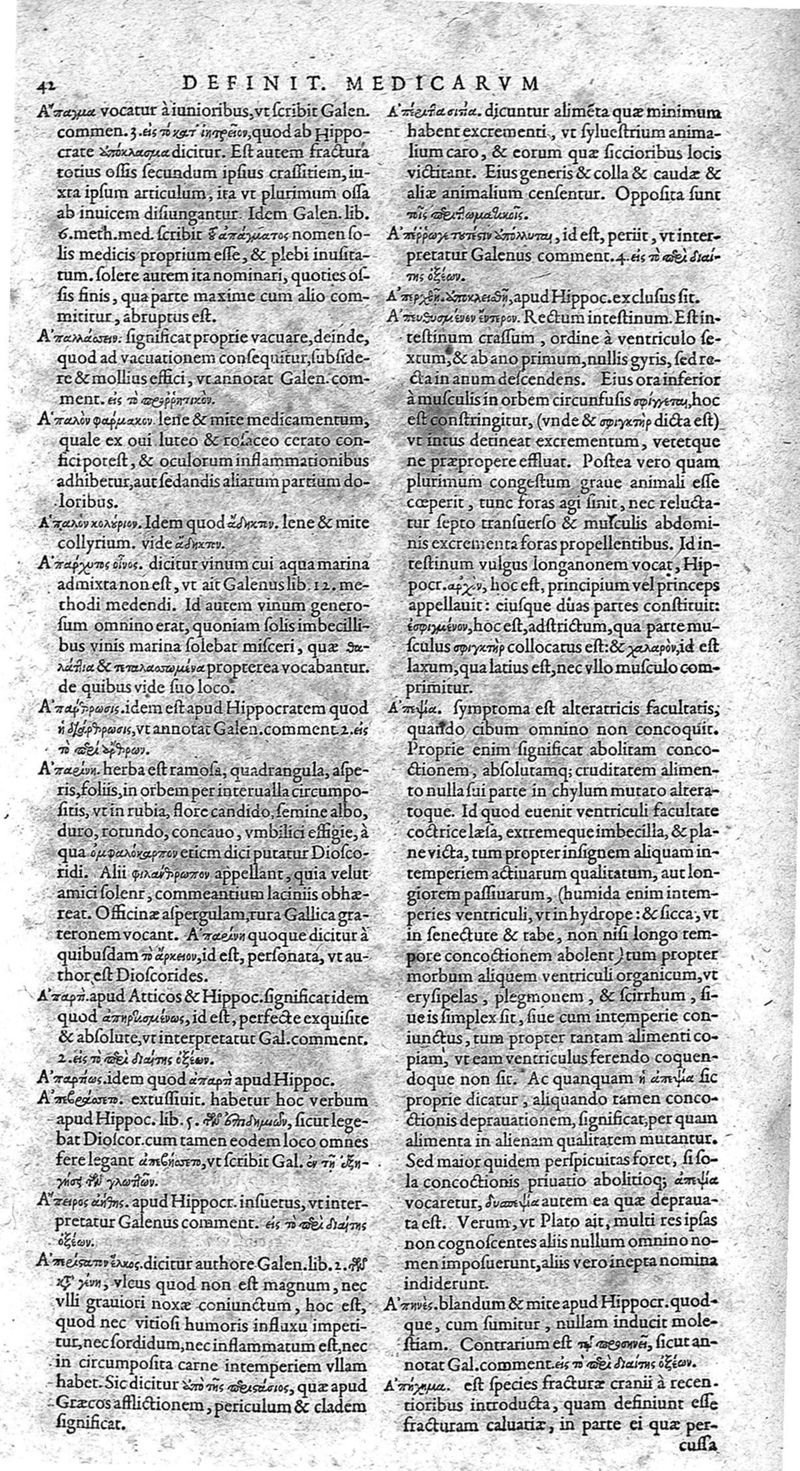 42 DEFINIT. MEDICARVM
Ἄπαγμα vocatur à iunioribus, vt scribit Galen.
commen. 3. εἰς τὸ κατ' ἰητρεῖον, quod ab Hippo-
crate ὑπόκλασμα dicitur. Est autem fractura
totius ossis secundum ipsius crassitiem, iu-
xta ipsum articulum, ita vt plurimum ossa
ab inuicem disiungantur. Idem Galen. lib.
6. meth. med. scribit τοῦ ἀπάγματος nomen so-
lis medicis proprium esse, & plebi inusita-
tum. solere autem ita nominari, quoties os-
sis finis, qua parte maxime cum alio com-
mititur, abruptus est.
Ἀπαλλάσσειν. significat proprie vacuare, deinde,
quod ad vacuationem consequitur, subside-
re & mollius effici, vt annotat Galen. com-
ment. εἰς τὸ προρρητικόν.
Ἁπαλὸν φάρμακον. lene & mite medicamentum,
quale ex oui luteo & rosaceo cerato con-
fici potest, & oculorum inflammationibus
adhibetur, aut sedandis aliarum partium do-
loribus.
Ἁπαλὸν κολύριον. Idem quod ἄδηκτον. lene & mite
collyrium. vide ἄδηκτον.
Ἀπάρχυτος οἶνος. dicitur vinum cui aqua marina
admixta non est, vt ait Galenus lib. 12. me-
thodi medendi. Id autem vinum genero-
sum omnino erat, quoniam solis imbecilli-
bus vinis marina solebat misceri, quæ θα-
λάττια & τεταλαττωμένα propterea vocabantur.
de quibus vide suo loco.
Ἀπάρθρωσις. idem est apud Hippocratem quod
ἡ διάρθρωσις, vt annotat Galen. comment. 2. εἰς
τὸ περὶ ἄρθρων.
Ἀπαρίνη. herba est ramosa, quadrangula, aspe-
ris, foliis, in orbem per interualla circumpo-
sitis, vt in rubia, flore candido, semine albo,
duro, rotundo, concauo, vmbilici effigie, à
qua ὀμφαλόκαρπον etiam dici putatur Diosco-
ridi. Alii φιλάνθρωπον appellant, quia velut
amici solent, commeantium laciniis obhæ-
reat. Officinæ aspergulam, rura Gallica gra-
teronem vocant. Ἀπαρίνη quoque dicitur à
quibusdam τὸ ἄρκειον, id est, personata, vt au-
thor est Dioscorides.
Ἀπαρτὶ. apud Atticos & Hippoc. significat idem
quod ἀπηρτισμένως, id est, perfecte exquisite
& absolute, vt interpretatur Gal. comment.
2. εἰς τὸ περὶ διαίτης ὀξέων.
idem quod ἀπαρτὶ apud Hippoc.
Ἀπεβράσσετο. extussiuit. habetur hoc verbum
apud Hippoc. lib. 5. τῶν ἐπιδημιῶν, sicut lege-
bat Dioscor. cum tamen eodem loco omnes
fere legant ἀπεβήσσετο, vt scribit Gal. ἐν τῇ ἐξη-
γήσει τῶν γλωττῶν.
Ἄπειρος ἀήθης. apud Hippocr. insuetus, vt inter-
pretatur Galenus comment. εἰς τὸ περὶ διαίτης
ὀξέων.
Ἀπερίστατον ἕλκος. dicitur authore Galen. lib. 2. τῶν
κατὰ γένη, vlcus quod non est magnum, nec
vlli grauiori noxæ coniunctum, hoc est,
quod nec vitiosi humoris influxu impeti-
tur, nec sordidum, nec inflammatum est, nec
in circumposita carne intemperiem vllam
habet. Sic dicitur ὑπὸ τῆς περιστάσιος, quæ apud
Græcos afflictionem, periculum & cladem
significat.
Ἀπέριττα σιτία. dicuntur alimēta quæ minimum
habent excrementi, vt syluestrium anima-
lium caro, & eorum quæ siccioribus locis
victitant. Eius generis & colla & caudæ &
aliæ animalium censentur. Opposita sunt
τοῖς περιττωματικοῖς.
Ἀπέρρωγε τουτέστιν ἀπόλλυται, id est, periit, vt inter-
pretatur Galenus comment. 4. εἰς τὸ περὶ διαί-
της ὀξέων.
Ἀπερχθῇ. ἀποκλεισθῇ, apud Hippoc. exclusus sit.
Ἀπευθυσμένον ἔντερον. Rectum intestinum. Est in-
testinum crassum, ordine à ventriculo se-
xtum, & ab ano primum, nullis gyris, sed re-
cta in anum descendens. Eius ora inferior
à musculis in orbem circunfusis σφίγγεται, hoc
est constringitur, (vnde & σφιγκτὴρ dicta est)
vt intus detineat excrementum, vetetque
ne præpropere effluat. Postea vero quam
plurimum congestum graue animali esse
cœperit, tunc foras agi sinit, nec relucta-
tur septo transuerso & musculis abdomi-
nis excrementa foras propellentibus. Id in-
testinum vulgus longanonem vocat, Hip-
pocr. ἀρχὴν, hoc est, principium vel princeps
appellauit: eiusque duas partes constituit:
ἐσφιγμένον, hoc est, adstrictum, qua parte mu-
sculus σφιγκτὴρ collocatus est: & χαλαρὸν, id est
laxum, qua latius est, nec vllo musculo com-
primitur.
Ἀπεψία. symptoma est alteratricis facultatis,
quando cibum omnino non concoquit.
Proprie enim significat abolitam conco-
ctionem, absolutamq; cruditatem alimen-
to nulla sui parte in chylum mutato altera-
toque. Id quod euenit ventriculi facultate
coctrice læsa, extremeque imbecilla, & pla-
ne victa, tum propter insignem aliquam in-
temperiem actiuarum qualitatum, aut lon-
giorem passiuarum, (humida enim intem-
peries ventriculi, vt in hydrope: & sicca, vt
in senectute & tabe, non nisi longo tem-
pore concoctionem abolent) tum propter
morbum aliquem ventriculi organicum, vt
erysipelas, plegmonem, & scirrhum, si-
ue is simplex sit, siue cum intemperie con-
iunctus, tum propter tantam alimenti co-
piam, vt eam ventriculus ferendo coquen-
doque non sit. Ac quanquam ἡ ἀπεψία sic
proprie dicatur, aliquando tamen conco-
ctionis deprauationem, significat, per quam
alimenta in alienam qualitatem mutantur.
Sed maior quidem perspicuitas foret, si so-
la concoctionis priuatio abolitioq; ἀπεψία
vocaretur, δυσπεψία autem ea quæ depraua-
ta est. Verum, vt Plato ait, multi res ipsas
non cognoscentes aliis nullum omnino no-
men imposuerunt, aliis vero inepta nomina
indiderunt.
Ἀπηνές. blandum & mite apud Hippocr. quod-
que, cum sumitur, nullam inducit mole-
stiam. Contrarium est τῷ προσηνεῖ, sicut an-
notat Gal. comment. εἰς τὸ περὶ διαίτης ὀξέων.
Ἀπήχημα. est species fracturæ cranii à recen-
tioribus introducta, quam definiunt esse
fracturam caluariæ, in parte ei quæ per-
cussa